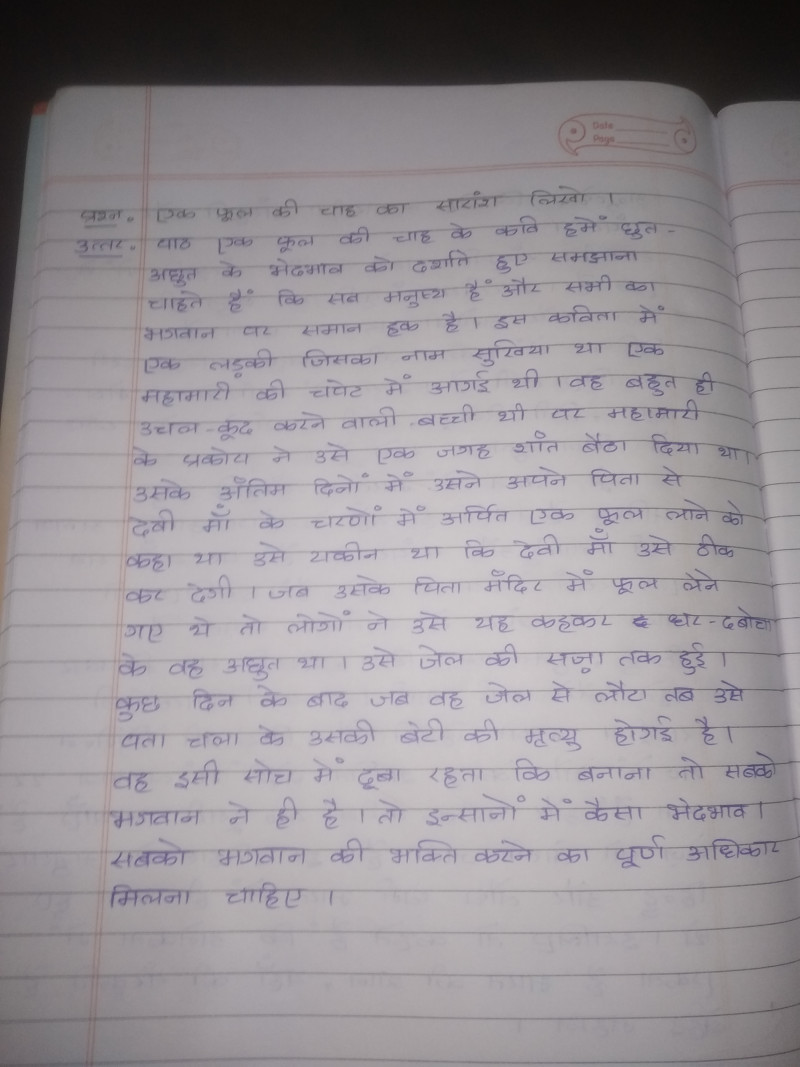 Date
Page
प्रश्न. एक फूल की चाह का सारांश लिखो ।
उत्तर. पाठ एक फूल की चाह के कवि हमें छुत-
अछुत के भेदभाव को दर्शाते हुए समझाना
चाहते हैं कि सब मनुष्य हैं और सभी का
भगवान पर समान हक है । इस कविता में
एक लड़की जिसका नाम सुखिया था एक
महामारी की चपेट में आगई थी । वह बहुत ही
उचल-कूद करने वाली बच्ची थी पर महामारी
के प्रकोप ने उसे एक जगह शांत बैठा दिया था।
उसके अंतिम दिनों में उसने अपने पिता से
देवी माँ के चरणों में अर्पित एक फूल लाने को
कहा था उसे यकीन था कि देवी माँ उसे ठीक
कर देगी । जब उसके पिता मंदिर में फूल लेने
गए थे तो लोगों ने उसे यह कहकर धर-दबोचा
के वह अछुत था । उसे जेल की सज़ा तक हुई ।
कुछ दिन के बाद जब वह जेल से लौटा तब उसे
पता चला के उसकी बेटी की मृत्यु होगई है।
वह इसी सोच में डूबा रहता कि बनाना तो सबको
भगवान ने ही है । तो इन्सानों में कैसा भेदभाव ।
सबको भगवान की भक्ति करने का पूर्ण अधिकार
मिलना चाहिए ।